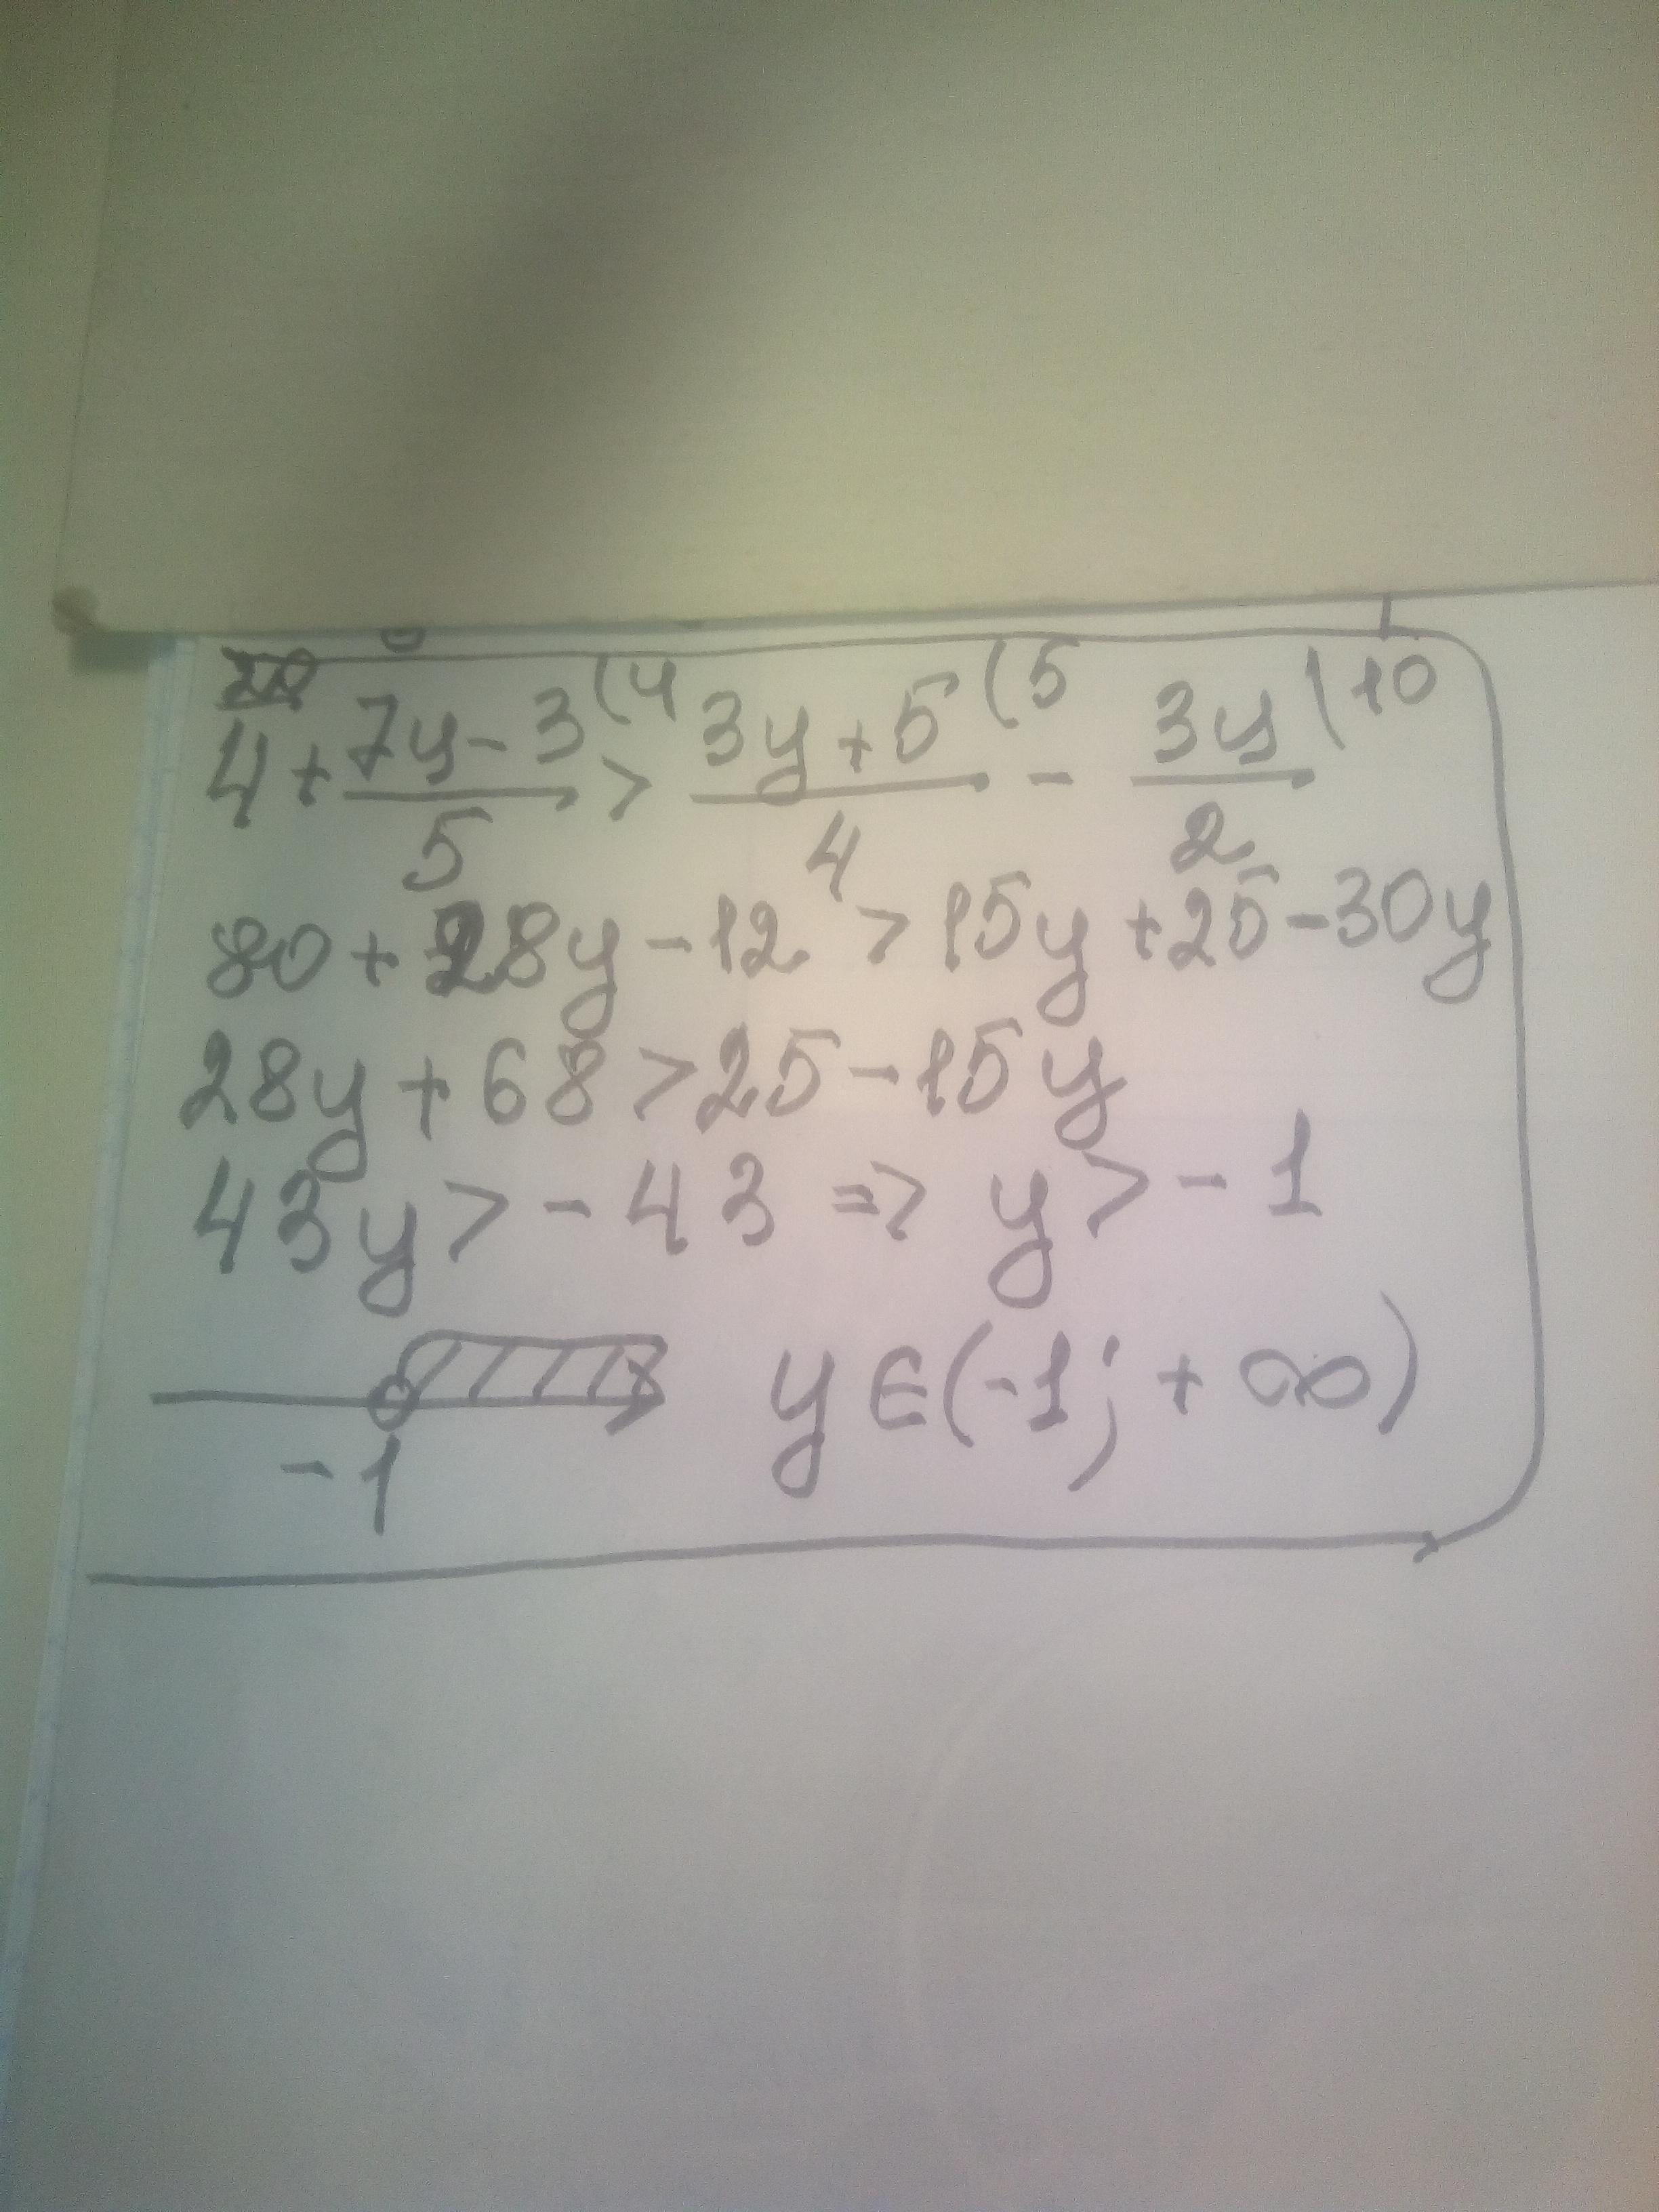 4 + (7y - 3)/5 (4 > (3y + 5)/4 (5 - 3y/2 (10
80 + 28y - 12 > 15y + 25 - 30y
28y + 68 > 25 - 15y
43y > -43 => y > -1
-1
y ∈ (-1; +∞)